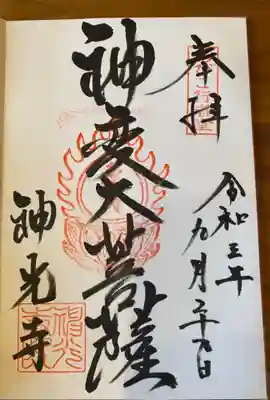 奉拝
令和三年九月二十九日
神変大菩薩
神光寺